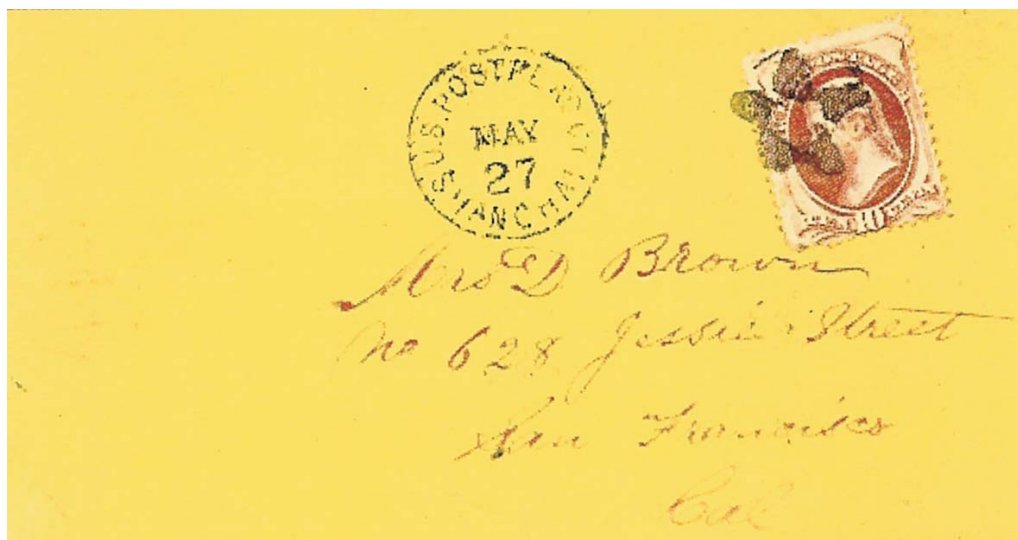 U.S. POSTAL AG'CY
MAY
27
SHANGHAI
10
Mrs D Brown
No 628 Jessie Street
San Francisco
Cal